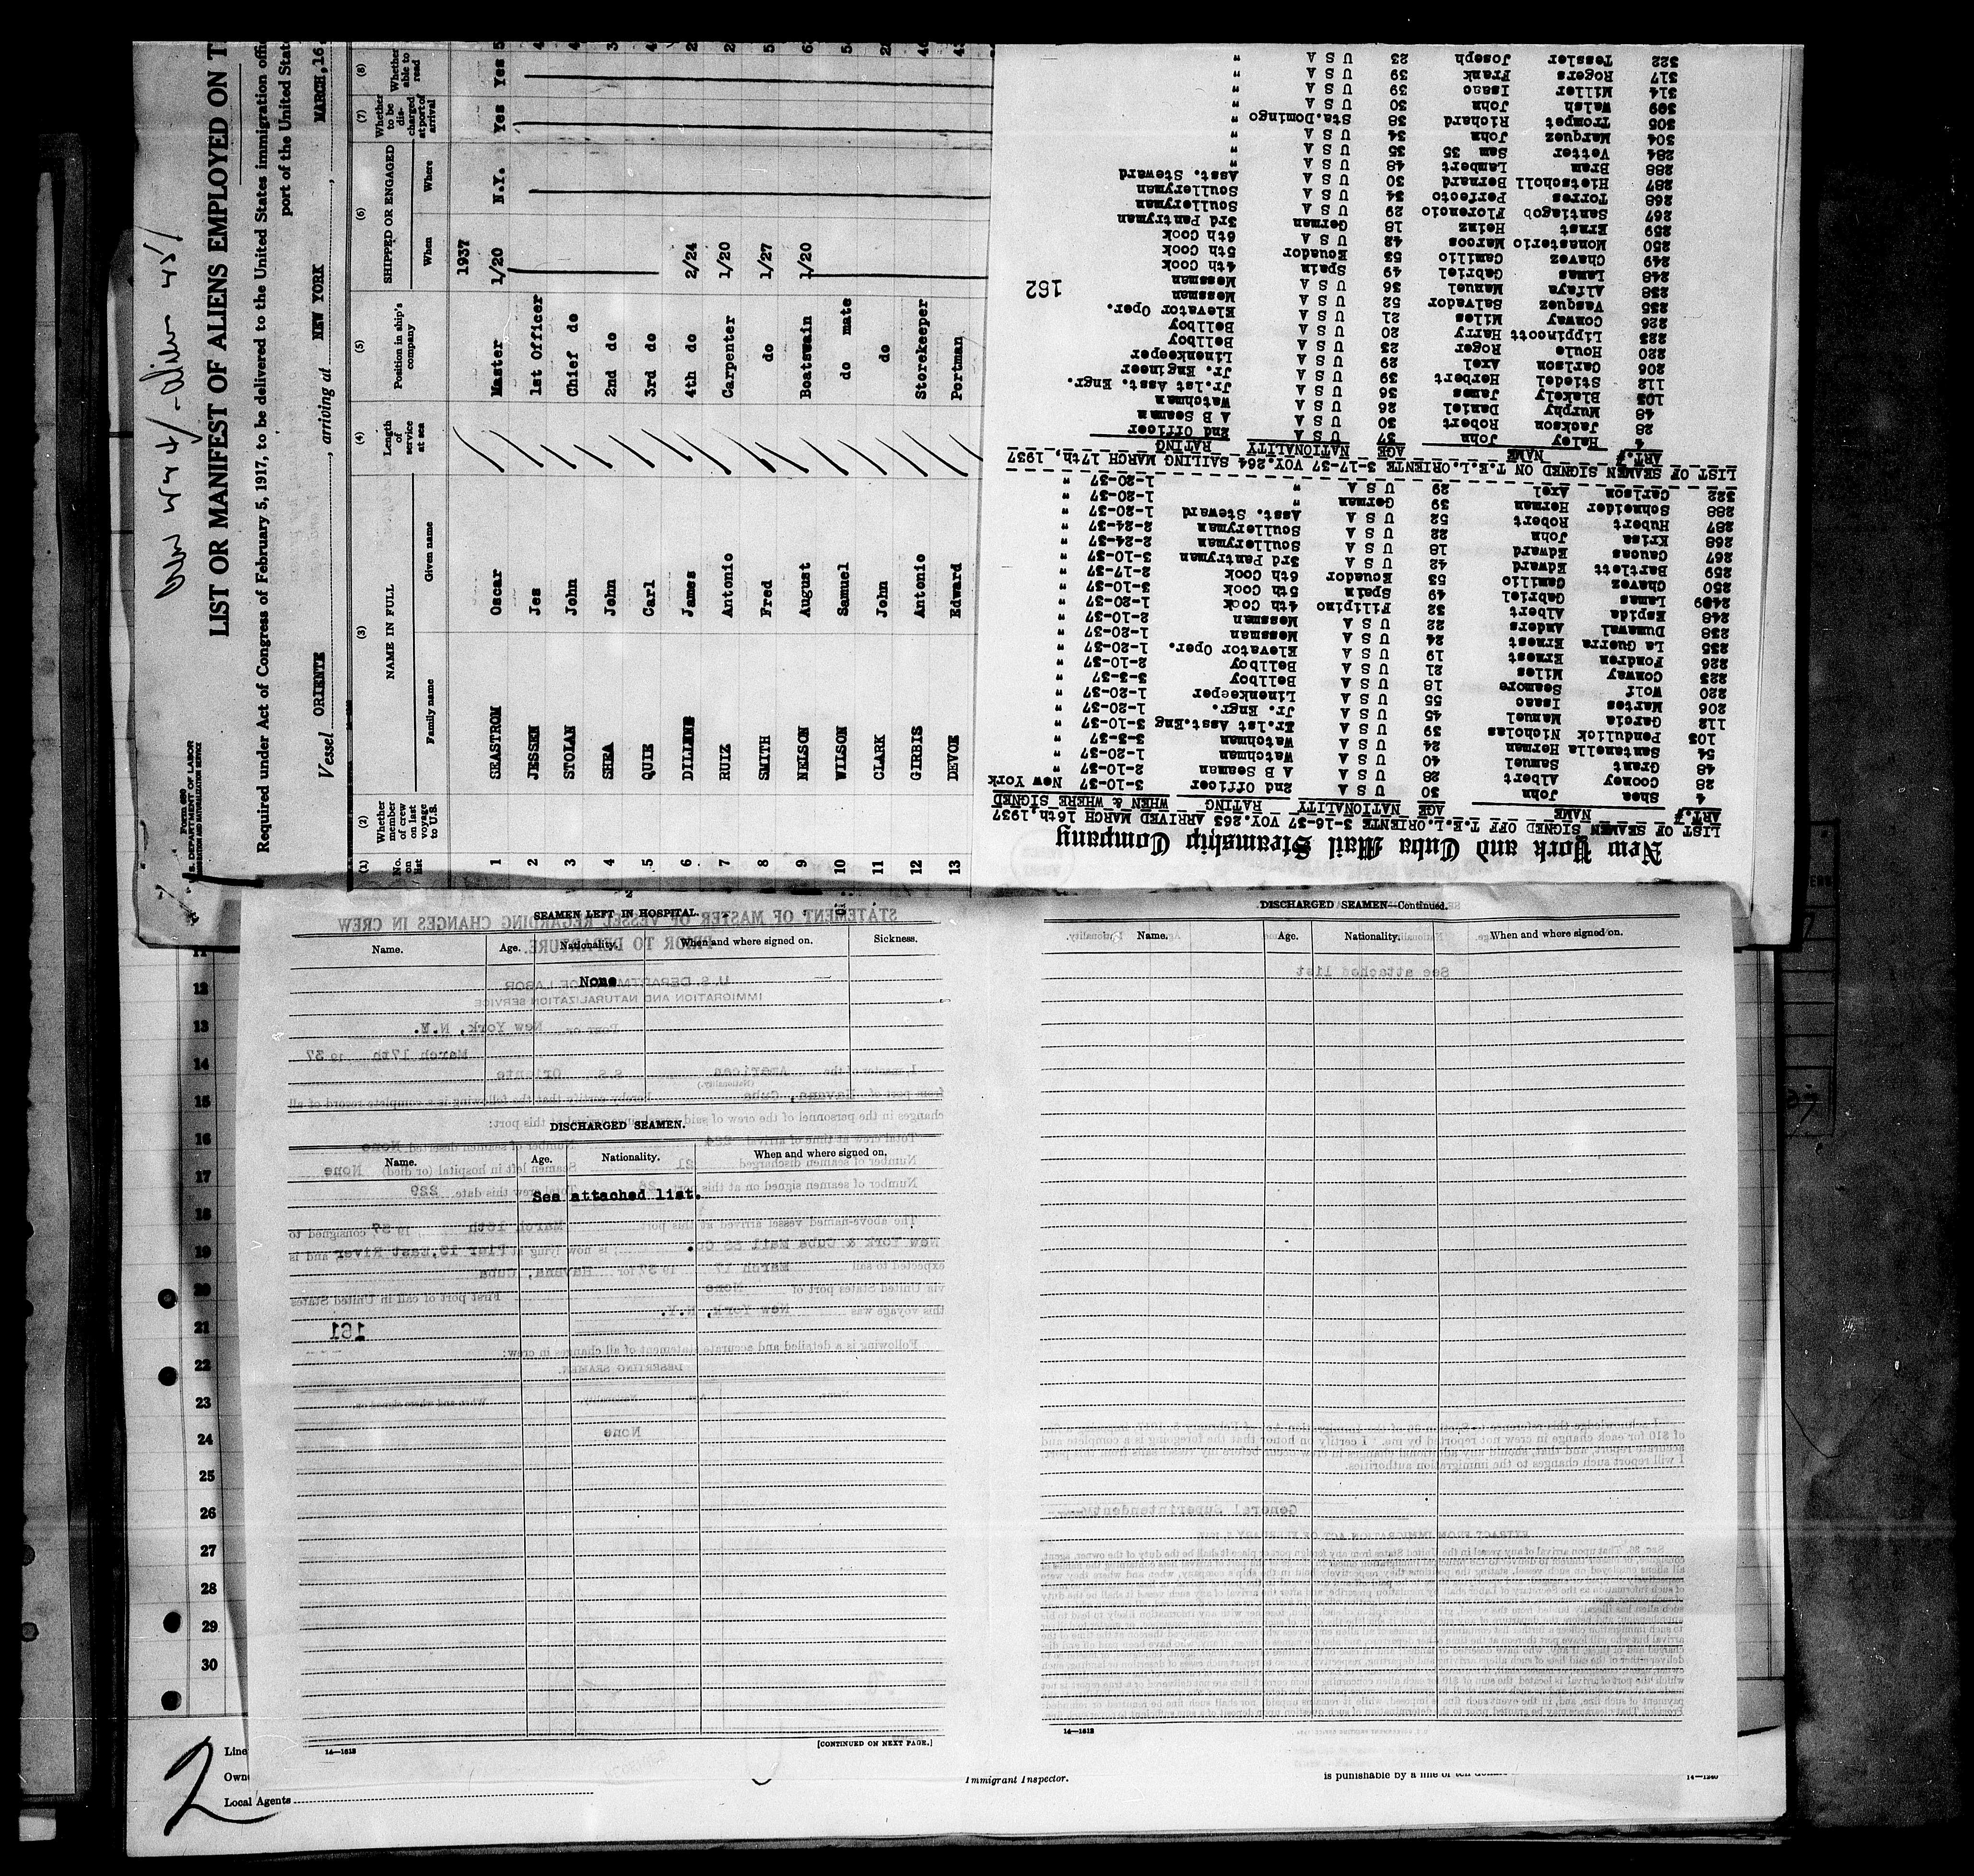 LIST OR MANIFEST OF ALIENS EMPLOYED ON T
Required under Act of Congress of February 5, 1917, to be delivered to the United States immigration offi
port of the United Stat
Vessel ORIENTE , arriving at NEW YORK , MARCH, 16
Form 680
U. S. DEPARTMENT OF LABOR
IMMIGRATION AND NATURALIZATION SERVICE
(1) (2) (3) (4) (5) (6) (7) (8)
No. on list Whether member of crew on last voyage to U.S. NAME IN FULL Length of service at sea Position in ship's company SHIPPED OR ENGAGED Whether to be discharged at port of arrival Whether able to read
Family name Given name When Where
1937
1 SEASTROM Oscar Master 1/20 N.Y. Yes Yes
2 JESSEN Jes 1st Officer
3 STOLAN John Chief do
4 SHEA John 2nd do
5 QUIE Carl 3rd do
6 DILLINE James 4th do 2/24
7 RUIZ Antonio Carpenter 1/20
8 SMITH Fred do 1/27
9 NELSON August Boatswain 1/20
10 WILSON Samuel do mate
11 CLARK John do
12 GIRBIS Antonio Storekeeper
13 DEVOE Edward Portman
New York and Cuba Mail Steamship Company
LIST OF SEAMEN SIGNED OFF T.E.L.ORIENTE 3-16-37 VOY.263 ARRIVED MARCH 16th,1937
ART.# NAME AGE NATIONALITY RATING WHEN & WHERE SIGNED
4 Shea John 30 U S A 2nd Officer 3-10-37 New York
28 Cooney Albert 28 U S A A B Seaman 2-10-37 "
48 Grant Samuel 40 U S A Watchman 1-20-37 "
54 Santanella Herman 24 U S A Watchman 3-3-37 "
103 Pendulick Nicholas 39 U S A Jr.1st Asst.Eng 3-10-37 "
112 Garcia Manuel 45 U S A Jr. Engr. 1-20-37 "
206 Martes Isaac 55 U S A Linenkeeper 1-20-37 "
220 Wolf Seamore 18 U S A Bellboy 3-3-37 "
223 Conway Miles 21 U S A Bellboy 2-10-37 "
226 Fondren Ernest 19 U S A Elevator Oper. 1-20-37 "
235 La Guerra Ernest 24 U S A Messman 1-20-37 "
238 Dunawal Anders 22 U S A Messman 2-10-37 "
248 Espida Albert 32 Filipino 4th Cook 1-20-37 "
2489 Lamas Gabriel 49 Spain 5th Cook 3-10-37 "
250 Chavez Camillo 53 Ecuador 6th Cook 2-17-37 "
259 Bartlett Edward 42 U S A 3rd Pantryman 3-10-37 "
267 Caucas Edward 18 U S A Soulleryman 2-24-37 "
268 Krisa John 22 U S A Soulleryman 2-24-37 "
287 Hubert Robert 52 U S A Asst. Steward 1-20-37 "
288 Schneider Herman 39 German " 1-20-37 "
322 Carlson Axel 29 U S A " 1-20-37 "
LIST OF SEAMEN SIGNED ON T.E.L.ORIENTE 3-17-37 VOY.264 SAILING MARCH 17th, 1937
ART.# NAME AGE NATIONALITY RATING
4 Haley John 37 U S A 2nd Officer
28 Jackson Robert 30 U S A A B Seaman
48 Murphy Daniel 26 U S A Watchman
103 Blakely James 36 U S A Jr.1st Asst. Engr.
112 Stiedel Herbert 39 U S A Jr. Engineer
206 Carlson Axel 29 U S A Linenkeeper
220 Houle Roger 23 U S A Bellboy
223 Lippincott Harry 20 U S A Bellboy
226 Conway Miles 21 U S A Elevator Oper.
235 Vasquez Salvador 52 U S A Messman
238 Alfaya Manuel 36 U S A Messman
248 Lamas Gabriel 49 Spain 4th Cook
249 Chavez Camillo 53 Ecuador 5th Cook
250 Monasterio Marcos 42 U S A 6th Cook
259 Ernst Heinz 18 German 3rd Pantryman
267 Santiagob Florencio 29 U S A Soulleryman
268 Torres Perfecto 34 U S A Soulleryman
287 Hietscholl Bernard 30 U S A Asst. Steward
288 Bran Lambert 48 U S A "
284 Vetter Sam 35 35 U S A "
304 Marquez John 34 U S A "
305 Trompet Richard 38 Sta.Domingo "
309 Walsh John 30 U S A "
314 Miller Isaac 39 U S A "
317 Rogers Frank 39 U S A "
322 Tessler Joseph 23 U S A "
162
SEAMEN LEFT IN HOSPITAL.
Name. Age. Nationality. When and where signed on. Sickness.
None
DISCHARGED SEAMEN.
Name. Age. Nationality. When and where signed on.
See attached list.
14—1613 [CONTINUED ON NEXT PAGE.]
DISCHARGED SEAMEN—Continued.
Name. Age. Nationality. When and where signed on.
14—1613
STATEMENT OF MASTER OF VESSEL REGARDING CHANGES IN CREW
PRIOR TO DEPARTURE.
U. S. DEPARTMENT OF LABOR
IMMIGRATION AND NATURALIZATION SERVICE
New York, N.Y.
March 17th 1937
I, master of the American S.S. Oriente
(Nationality.)
from port of Havana, Cuba hereby certify that the following is a complete record of all
changes in the personnel of the crew of said vessel since arrival at this port:
Total crew at time of arrival 224 Number of seamen deserted None
Number of seamen discharged 21 Seamen left in hospital (or died) None
Number of seamen signed on at this port 26 Total crew this date 229
The above-named vessel arrived at this port March 16th 1937 consigned to
New York & Cuba Mail SS Co. ; is now lying at Pier 13,East River and is
expected to sail March 17 1937 for Havana, Cuba
via United States port of None First port of call in United States
this voyage was New York, N.Y.
161
Following is a detailed and accurate statement of all changes in crew:
DESERTING SEAMEN.
None
See attached list
General Superintendent
EXTRACT FROM IMMIGRATION ACT OF FEBRUARY 5, 1917
11
12
13
14
15
16
17
18
19
20
21
22
23
24
25
26
27
28
29
30
2
Line
Owne
Local Agents
Immigrant Inspector.
is punishable by a fine of ten
14—1240